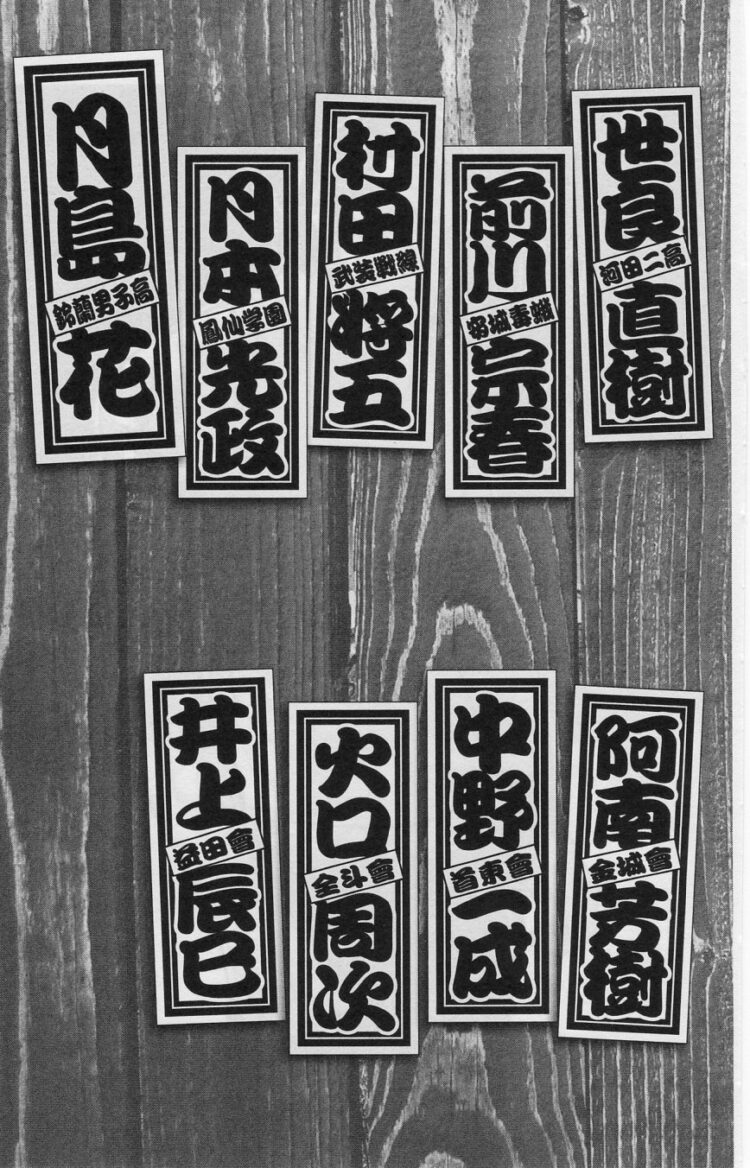 世良直樹
河田二高
前川宗春
村田将五
武装戦線
月本光政
鳳仙学園
月島花
鈴蘭男子高
阿南芳樹
金城會
中野一成
首東會
火口周次
全斗會
井上辰巳
益田會